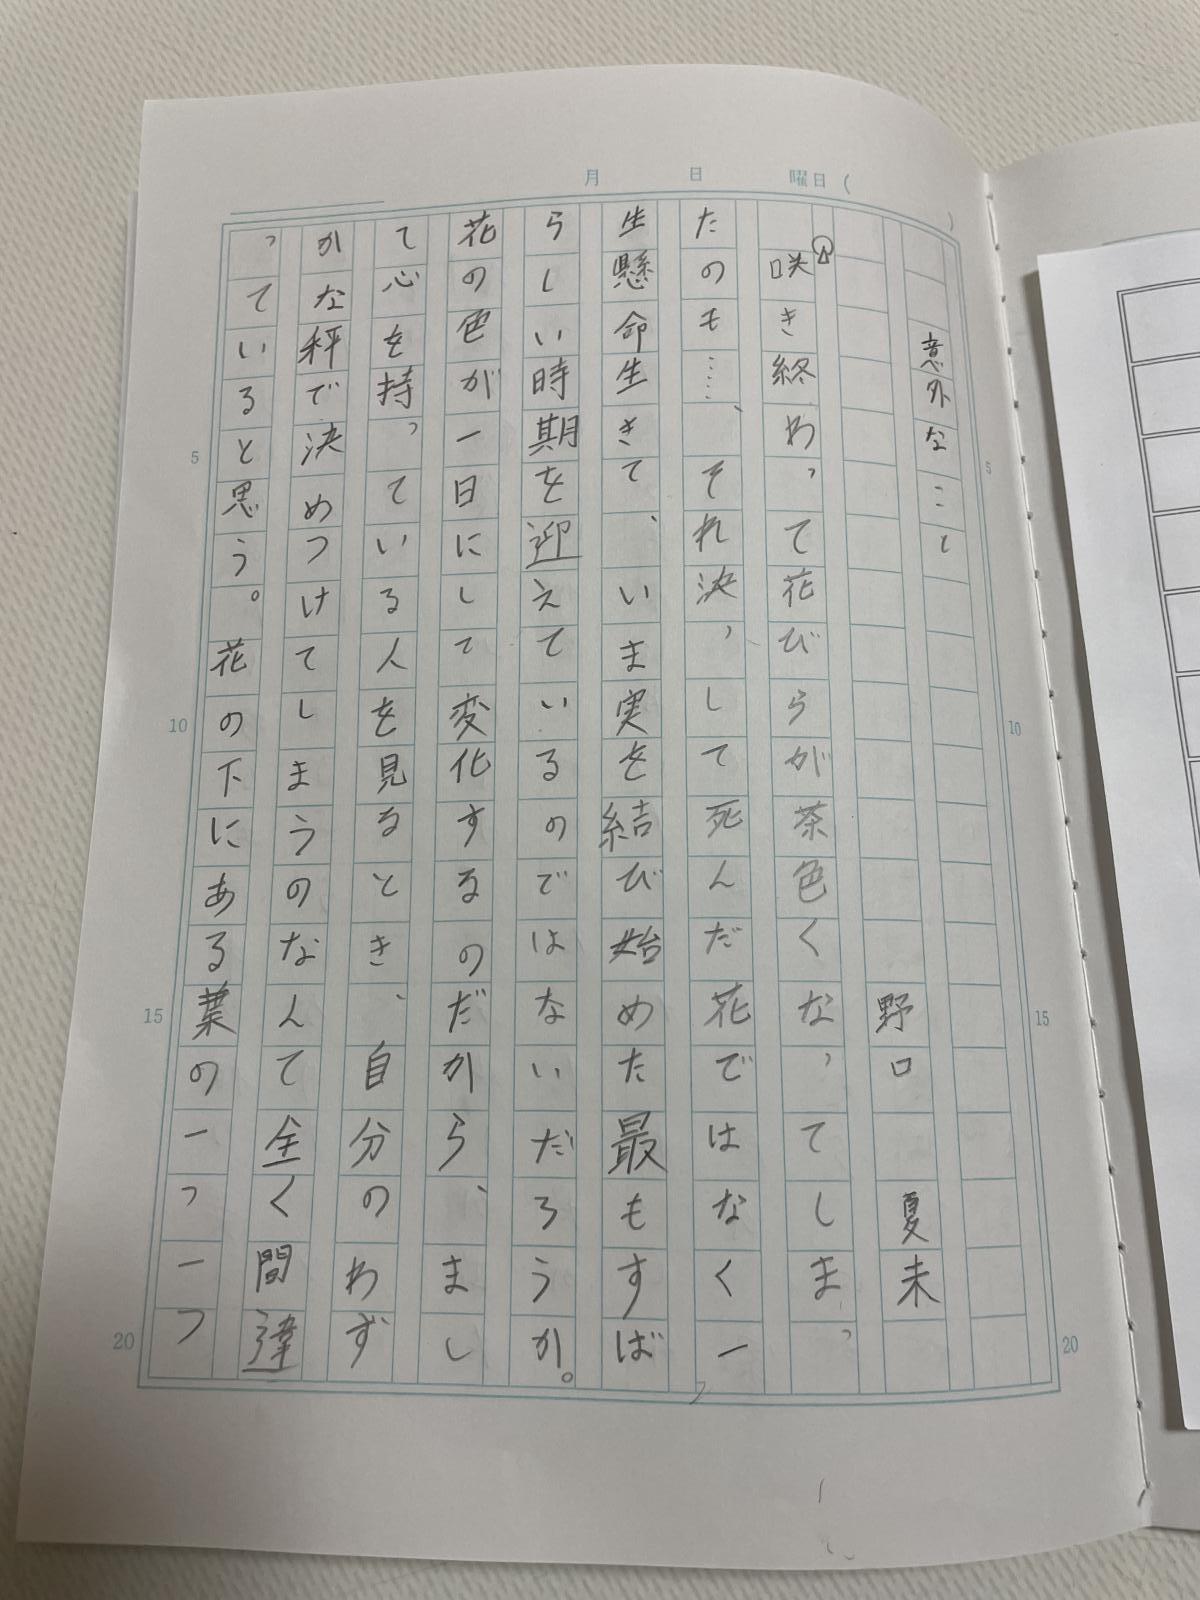 月 日 曜日 ( )
意外なこと
野口 夏未
咲き終わって花びらが茶色くなってしまっ
たのも……、それ決して死んだ花ではなく一
生懸命生きて、いま実を結び始めた最もすば
らしい時期を迎えているのではないだろうか。
花の色が一日にして変化するのだから、まし
て心を持っている人を見るとき、自分のわず
かな秤で決めつけてしまうのなんて全く間違
っていると思う。花の下にある葉の一つ一つ
5
10
15
20
5
10
15
20